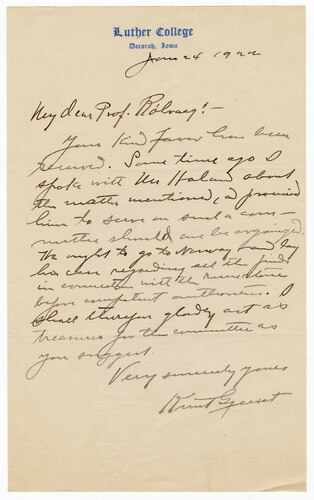 Luther College
Decorah, Iowa
June 24 1922
My dear Prof. Rölvaag:—
Your kind favor has been
received. Some time ago I
spoke with Mr Holand about
the matter mentioned, & promised
him to serve on such a com-
mittee should one be organized.
He ought to go to Norway and lay
his case regarding all the finds
in connection with the rune stone
before competent authorities. I
shall therefore gladly act as
treasurer for the committee as
you suggest.
Very sincerely yours
Knut Gjerset